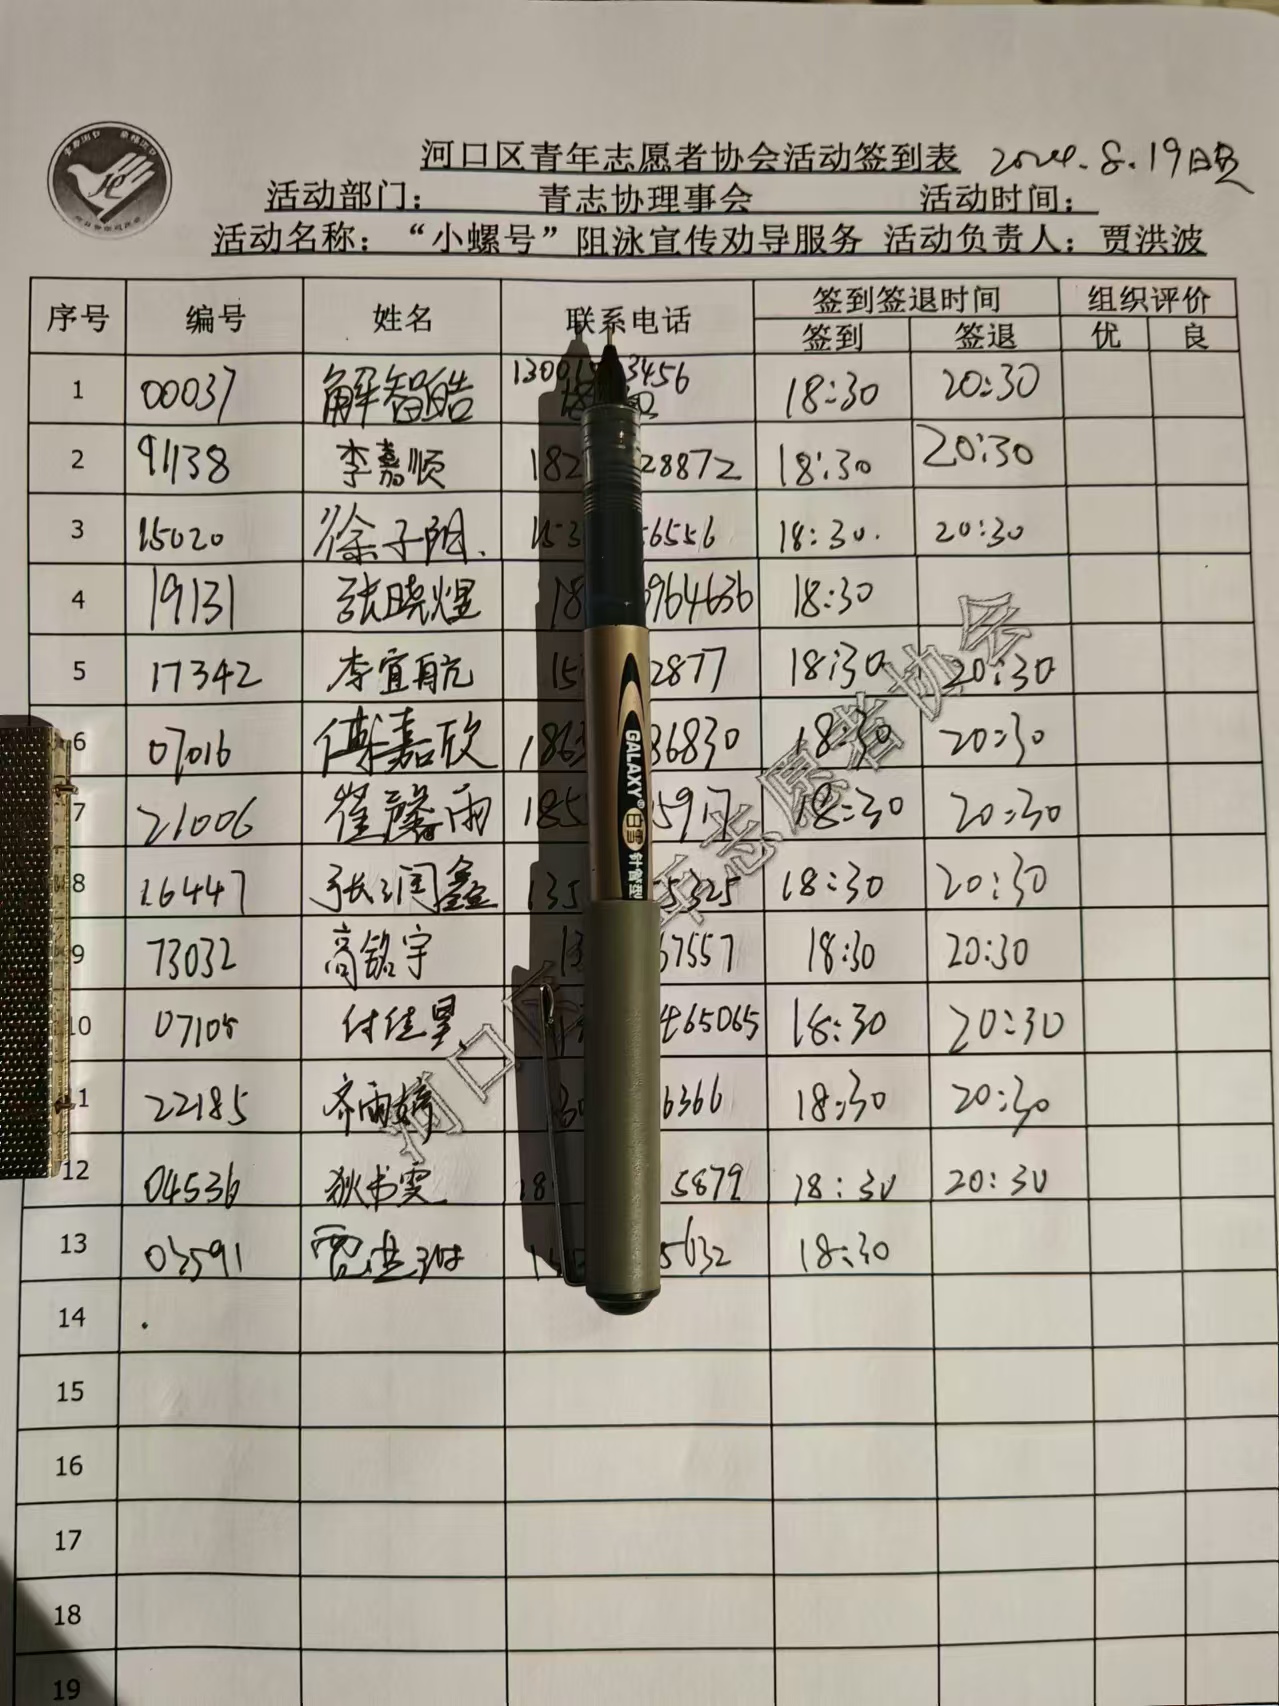 河口区青年志愿者协会活动签到表 2024.8.19日晚
活动部门： 青志协理事会 活动时间：
活动名称：“小螺号”阻泳宣传劝导服务 活动负责人：贾洪波
序号 编号 姓名 联系电话 签到签退时间 组织评价
签到 签退 优 良
1 00037 解智皓 3456 18:30 20:30
2 91138 李嘉顺 182 28872 18:30 20:30
3 15020 徐子阳 153 6556 18:30. 20:30
4 19131 张晓煜 18 964636 18:30
5 17342 李宜航 15 2877 18:30 20:30
6 07016 傅嘉欣 186 36830 18:30 20:30
7 21006 崔馨雨 185 5917 18:30 20:30
8 16447 张润鑫 135 5325 18:30 20:30
9 73032 高铭宇 13 67557 18:30 20:30
10 07105 付佳星 465065 18:30 20:30
11 22185 齐雨婷 6366 18:30 20:30
12 04536 狄书雯 18 5879 18:30 20:30
13 03591 5632 18:30
14
15
16
17
18
19
GALAXY
白雪
针管型
河口区青年志愿者协会